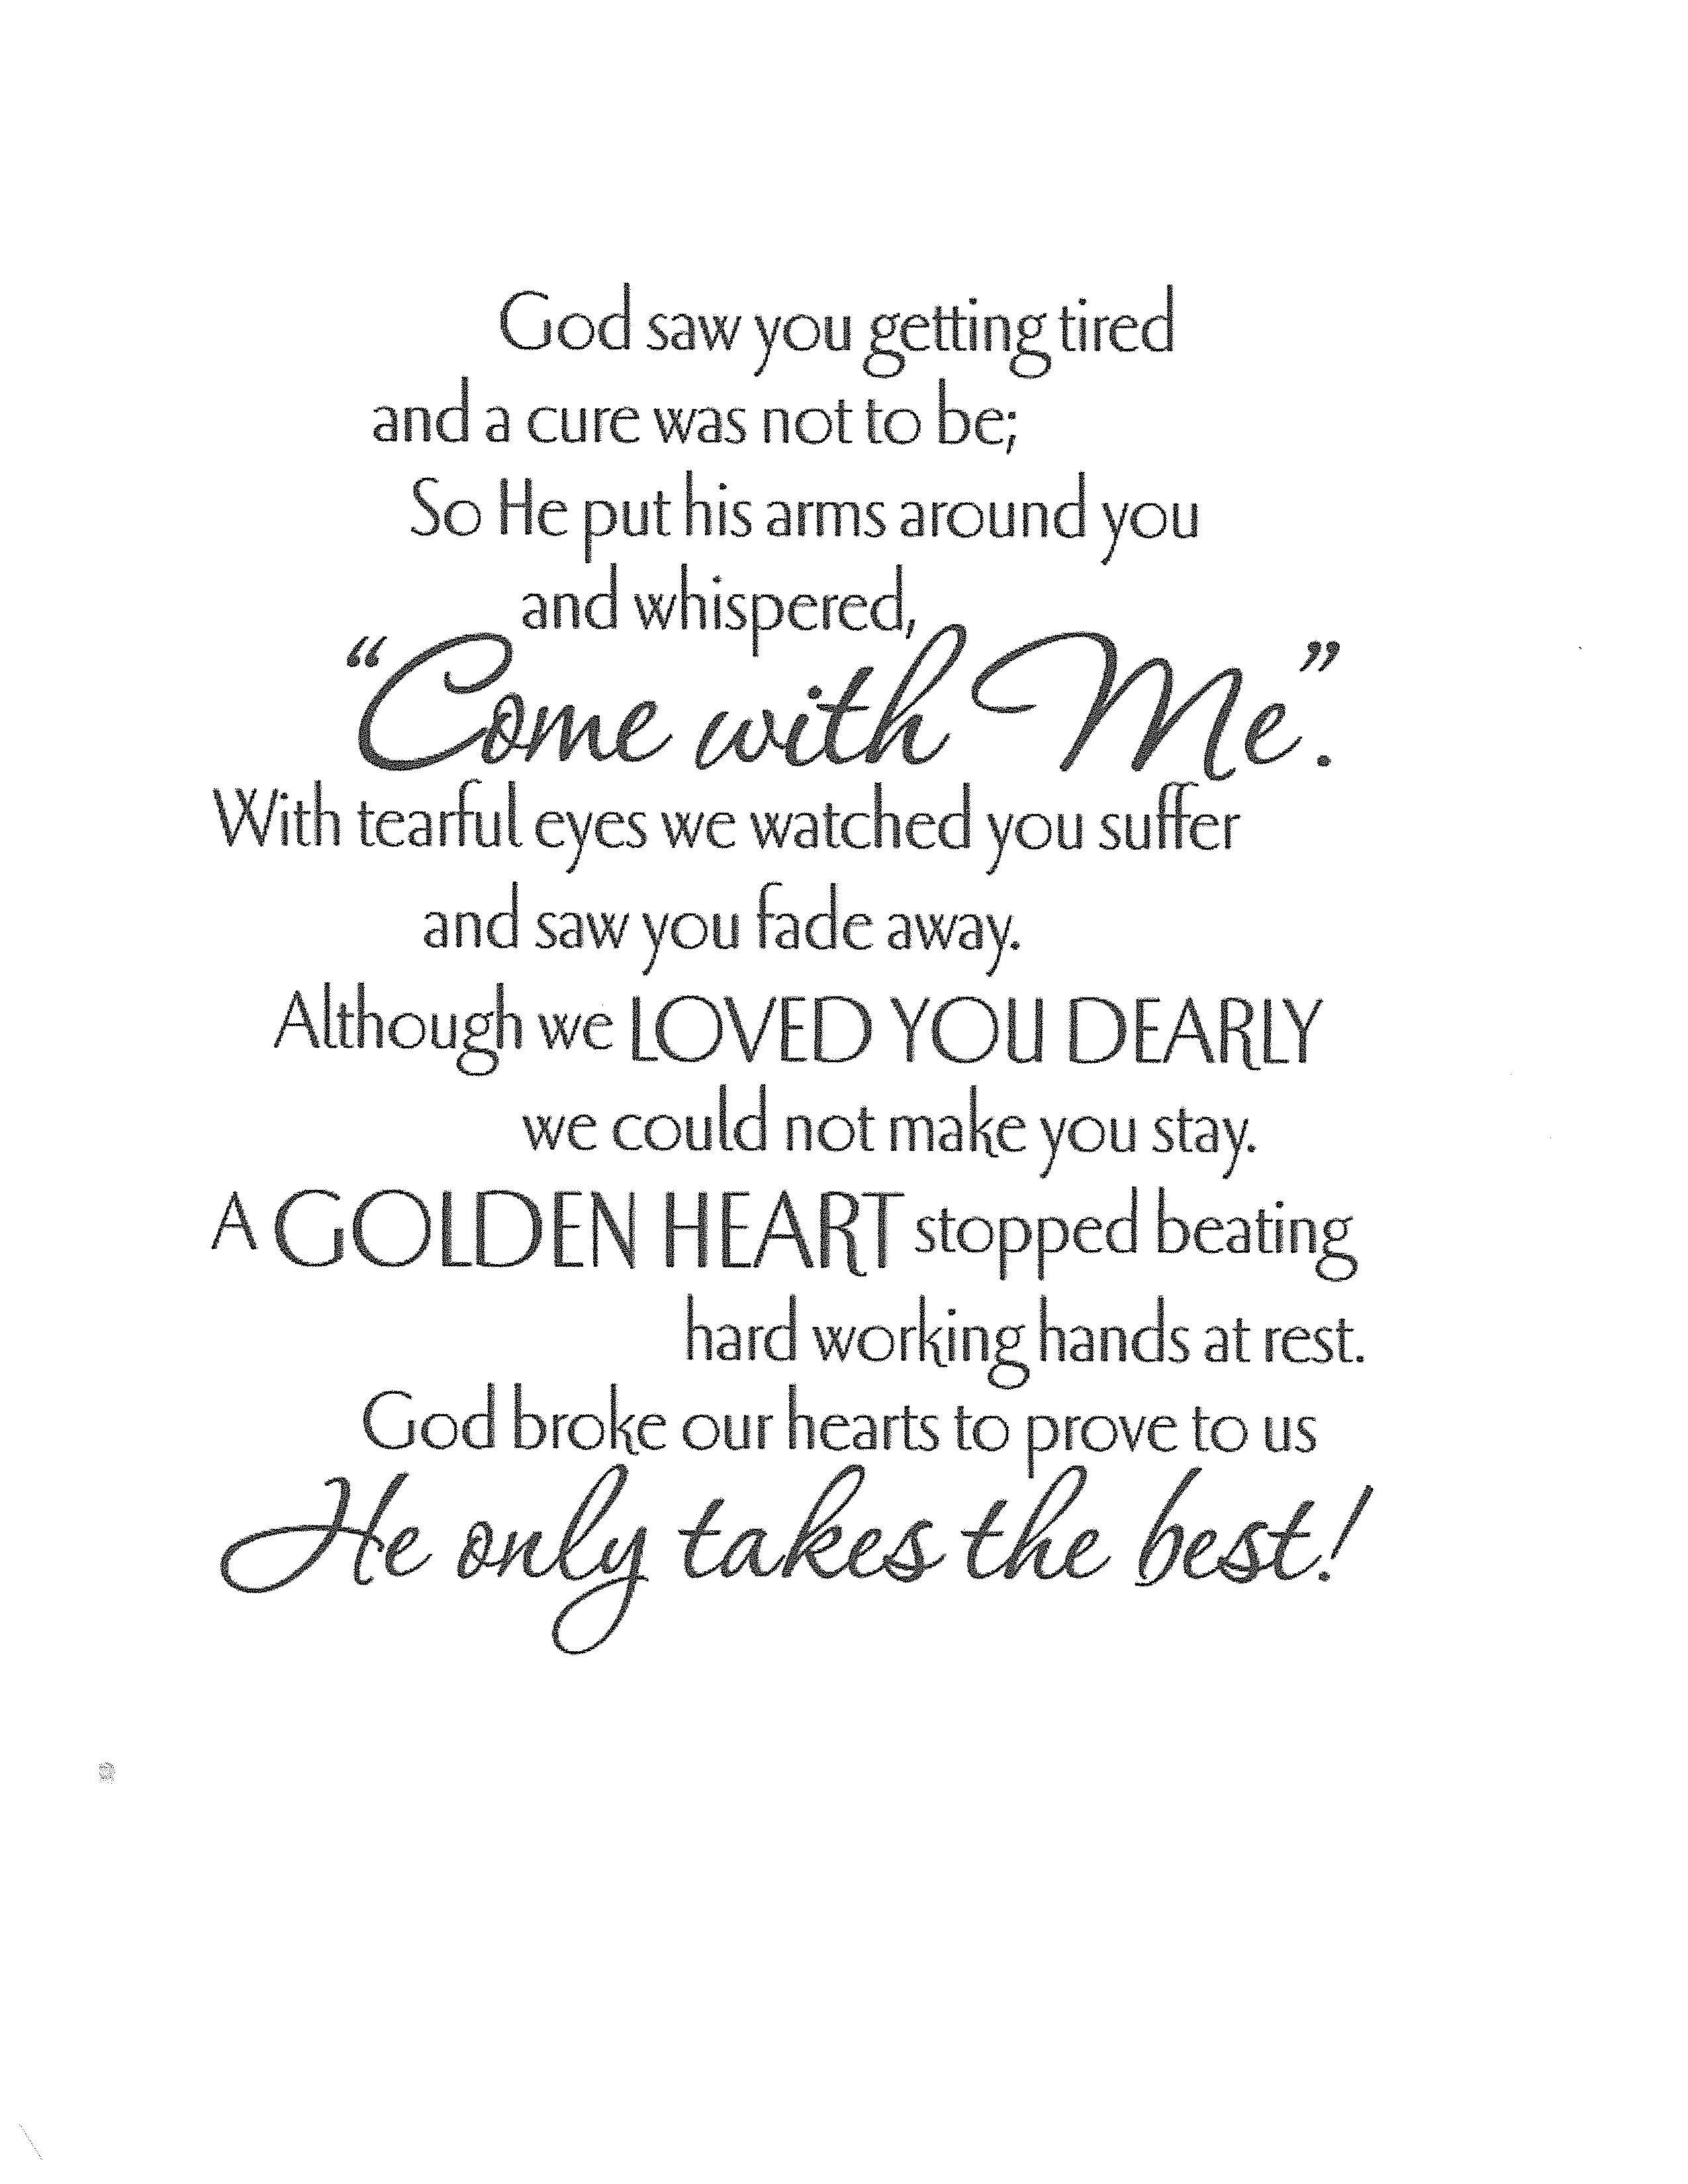 God saw you getting tired
and a cure was not to be;
So He put his arms around you
and whispered,
“Come with Me”.
With tearful eyes we watched you suffer
and saw you fade away.
Although we LOVED YOU DEARLY
we could not make you stay.
A GOLDEN HEART stopped beating
hard working hands at rest.
God broke our hearts to prove to us
He only takes the best!